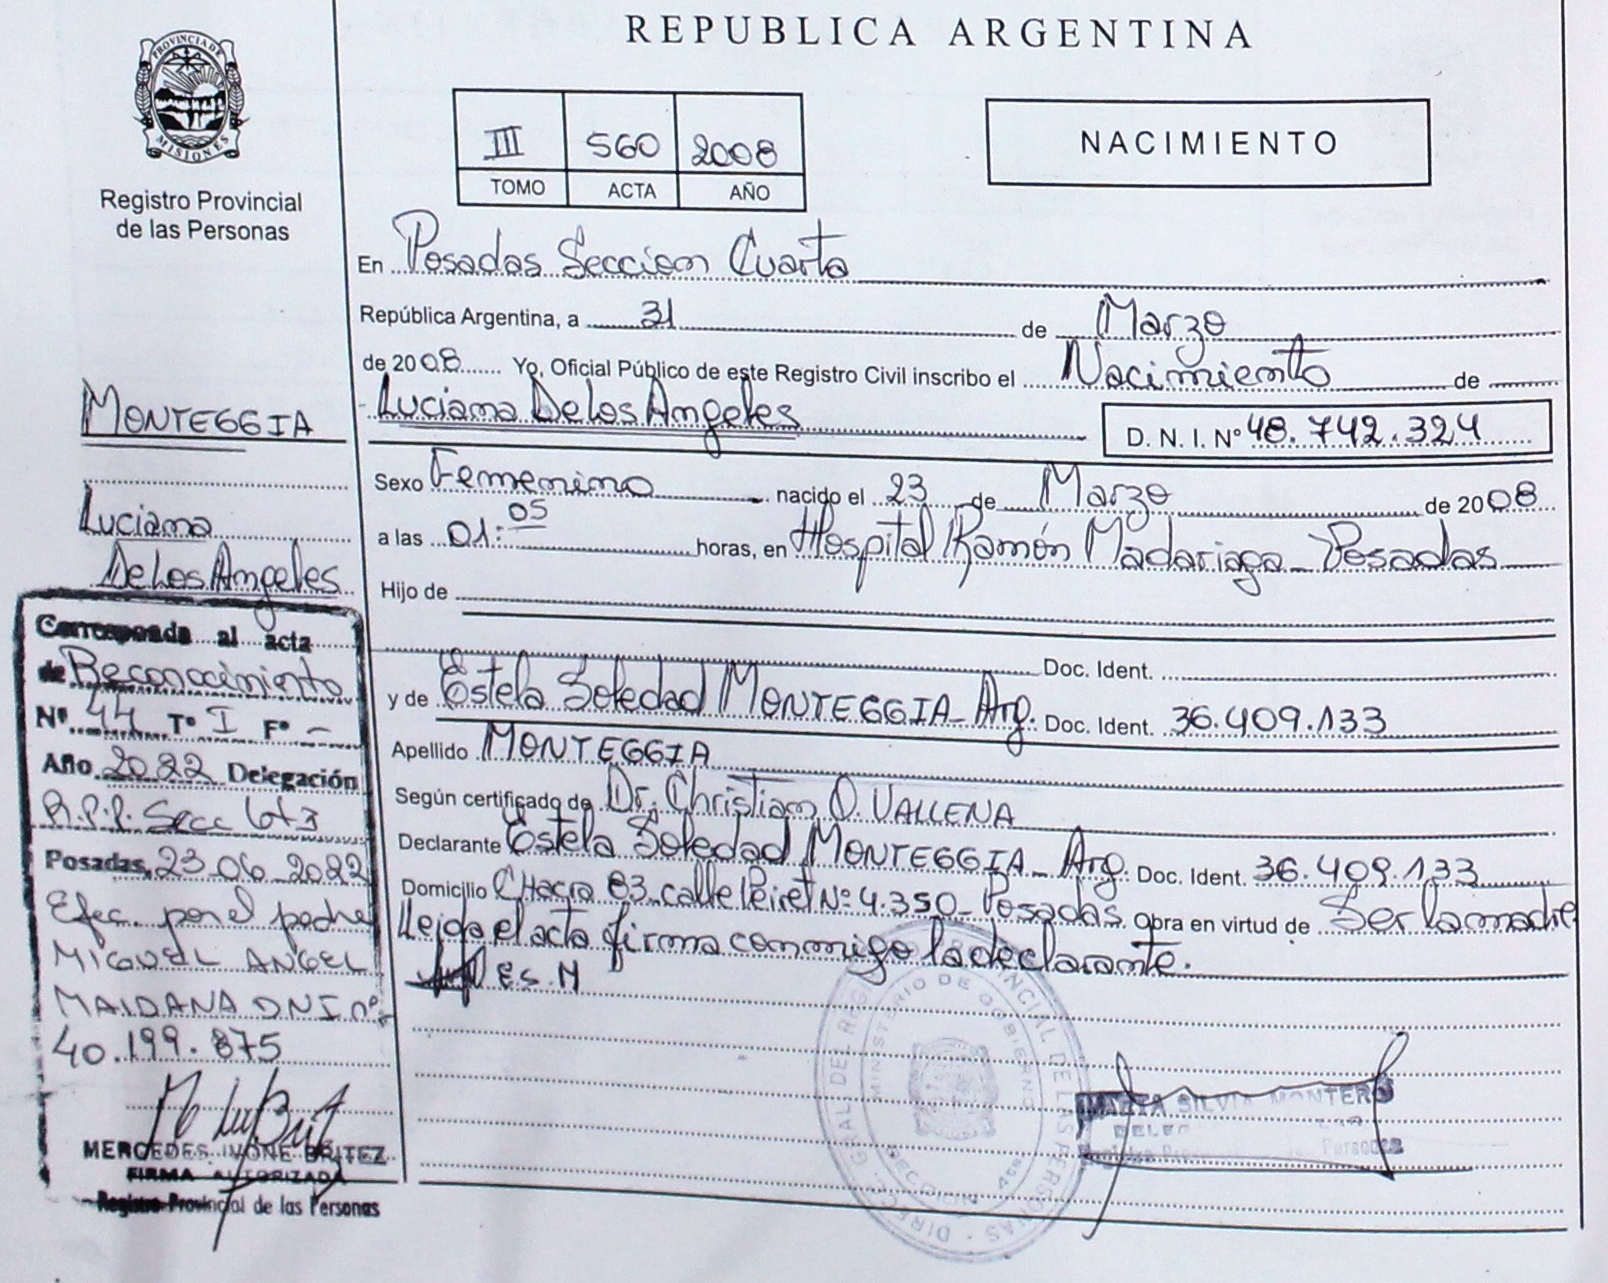 REPUBLICA ARGENTINA
PROVINCIA DE MISIONES
Registro Provincial
de las Personas
III 560 2008
TOMO ACTA AÑO
NACIMIENTO
En Posadas Seccion Cuarta
República Argentina, a 31 de Marzo
de 2008 Yo, Oficial Público de este Registro Civil inscribo el Nacimiento de
Luciana De los Angeles D. N. I. Nº 48.742.324
Sexo Femenino nacido el 23 de Marzo de 2008
a las 01:05 horas, en Hospital Ramón Madariaga - Posadas
Hijo de
Doc. Ident.
y de Estela Soledad MONTEGGIA - Arg. Doc. Ident. 36.409.133
Apellido MONTEGGIA
Según certificado de Dr. Christian O. VALLENA
Declarante Estela Soledad MONTEGGIA - Arg. Doc. Ident. 36.409.133
Domicilio Chacra 83 calle Peiret Nº 4.350 - Posadas obra en virtud de Ser la madre
Leida el acta firma conmigo la declarante.
E.S.M
MONTEGGIA
Luciana
De los Angeles
Corresponde al acta
de Reconocimiento
Nº 44 Tº I Fº -
Año 2022 Delegación
R.P.P. Secc
Posadas, 23 06 2022
Efec. por el padre
MIGUEL ANGEL
MAIDANA DNI nº
40.199.875
MERCEDES IVONE BRITEZ
FIRMA AUTORIZADA
Registro Provincial de las Personas
MINISTERIO DE GOBIERNO
PROVINCIAL DE LAS PERSONAS
SECCION 4ta
MARIA SILVIA MONTERO
Personas